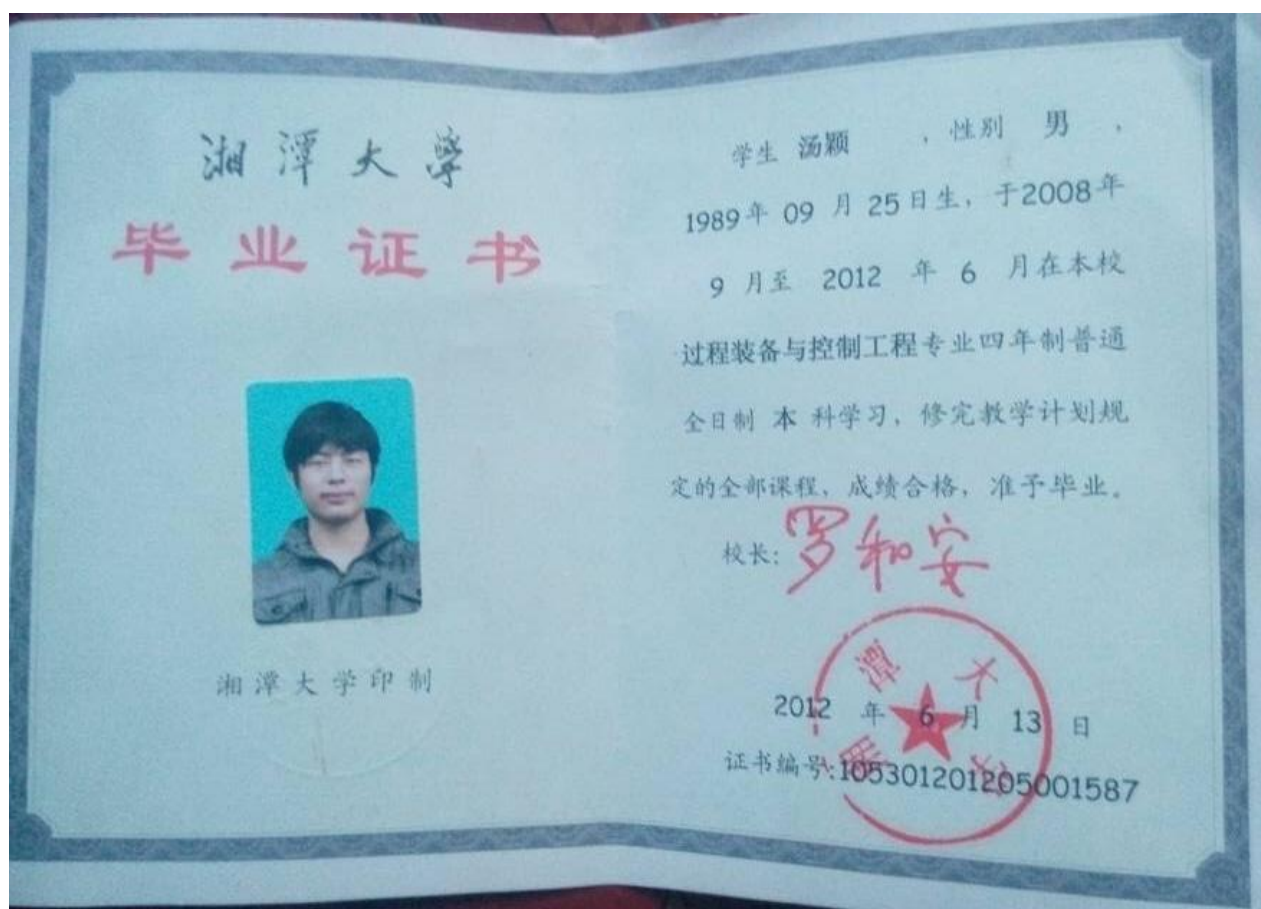 湘潭大學
毕业证书
湘潭大学印制
学生 汤颖 ，性别 男 ，
1989年 09 月 25日生，于2008年
9 月至 2012 年 6 月在本校
过程装备与控制工程专业四年制普通
全日制 本 科学习，修完教学计划规
定的全部课程，成绩合格，准予毕业。
校长：罗和安
湘潭大学
2012 年 6 月 13 日
证书编号：105301201205001587